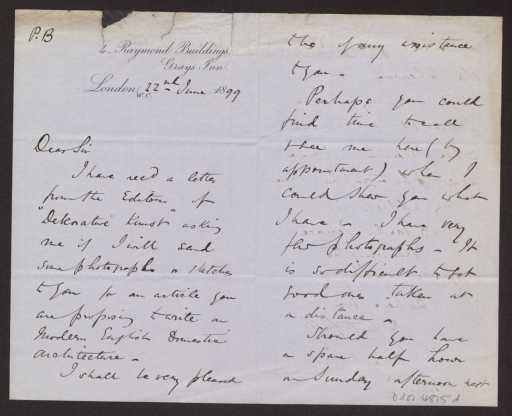 P.B
4, Raymond Buildings,
Grays Inn.
London, W.C. 22nd June 1899
Dear Sir
I have recd a letter
from the Editor of
"Dekorative Kunst" asking
me if I will send
some photographs or sketches
to you for an article you
are proposing to write on
Modern English Domestic
Architecture -
I shall be very pleased
to be of any assistance
to you -
Perhaps you could
find time to call
& see me here (by
appointment) when I
could show you what
I have - I have very
few photographs - It
is so difficult to get
good ones taken at
a distance -
Should you have
a spare half hour
on Sunday afternoon next